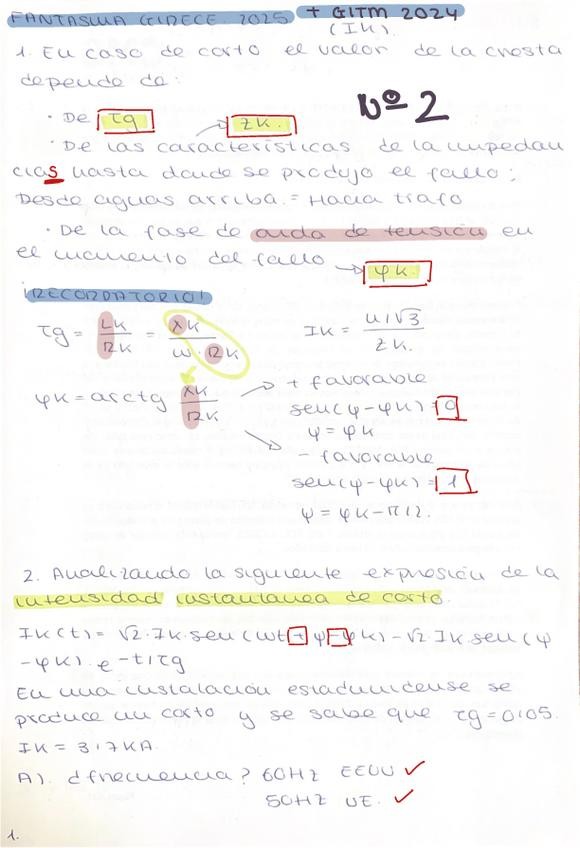 FANTASMA GIRECE. 2025 + GITM 2024
(IK).
1. En caso de corto el valor de la cresta
depende de:
Nº 2
· De τg → ZK.
· De las características de la impedan
cias hasta donde se produjo el fallo;
Desde aguas arriba = Hacia trafo
· De la fase de onda de tensión en
el momento del fallo → φK.
¡RECORDATORIO!
τg = LK/RK = XK/ω·RK
IK = U/√3/ZK.
φK = arctg XK/RK
+ favorable
sen(ψ-φK) = 0
ψ = φK
- favorable
sen(ψ-φK) = 1
ψ = φK-π/2.
2. Analizando la siguiente expresión de la
intensidad instantánea de corto.
IK(t) = √2·IK·sen(ωt+ψ-φK) - √2·IK sen(ψ
-φK)·e-t/τg
En una instalación estadunidense se
produce un corto y se sabe que τg = 0'05.
IK = 3'7KA.
A). ¿frecuencia? 60HZ EEUU ✓
50HZ UE. ✓
1.